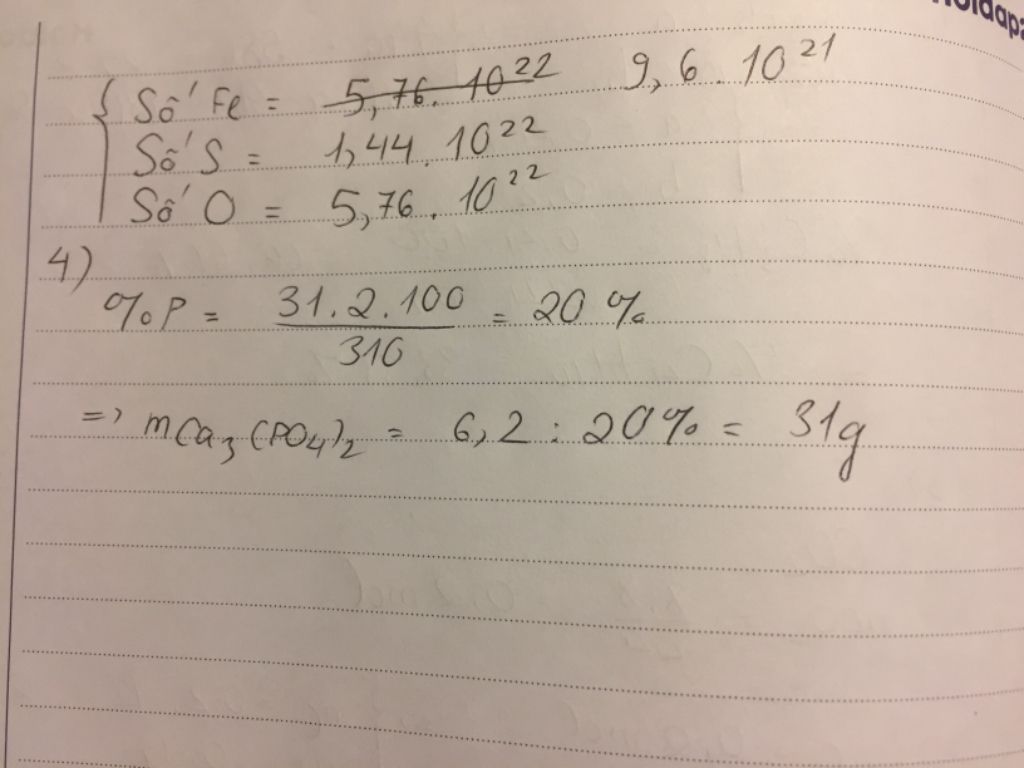 Số Fe = 5,76.10²² 9,6.10²¹
Số S = 1,44.10²²
Số O = 5,76.10²²
4)
%P = 31.2.100 / 310 = 20%
=> mCa₃(PO₄)₂ = 6,2 : 20% = 31g